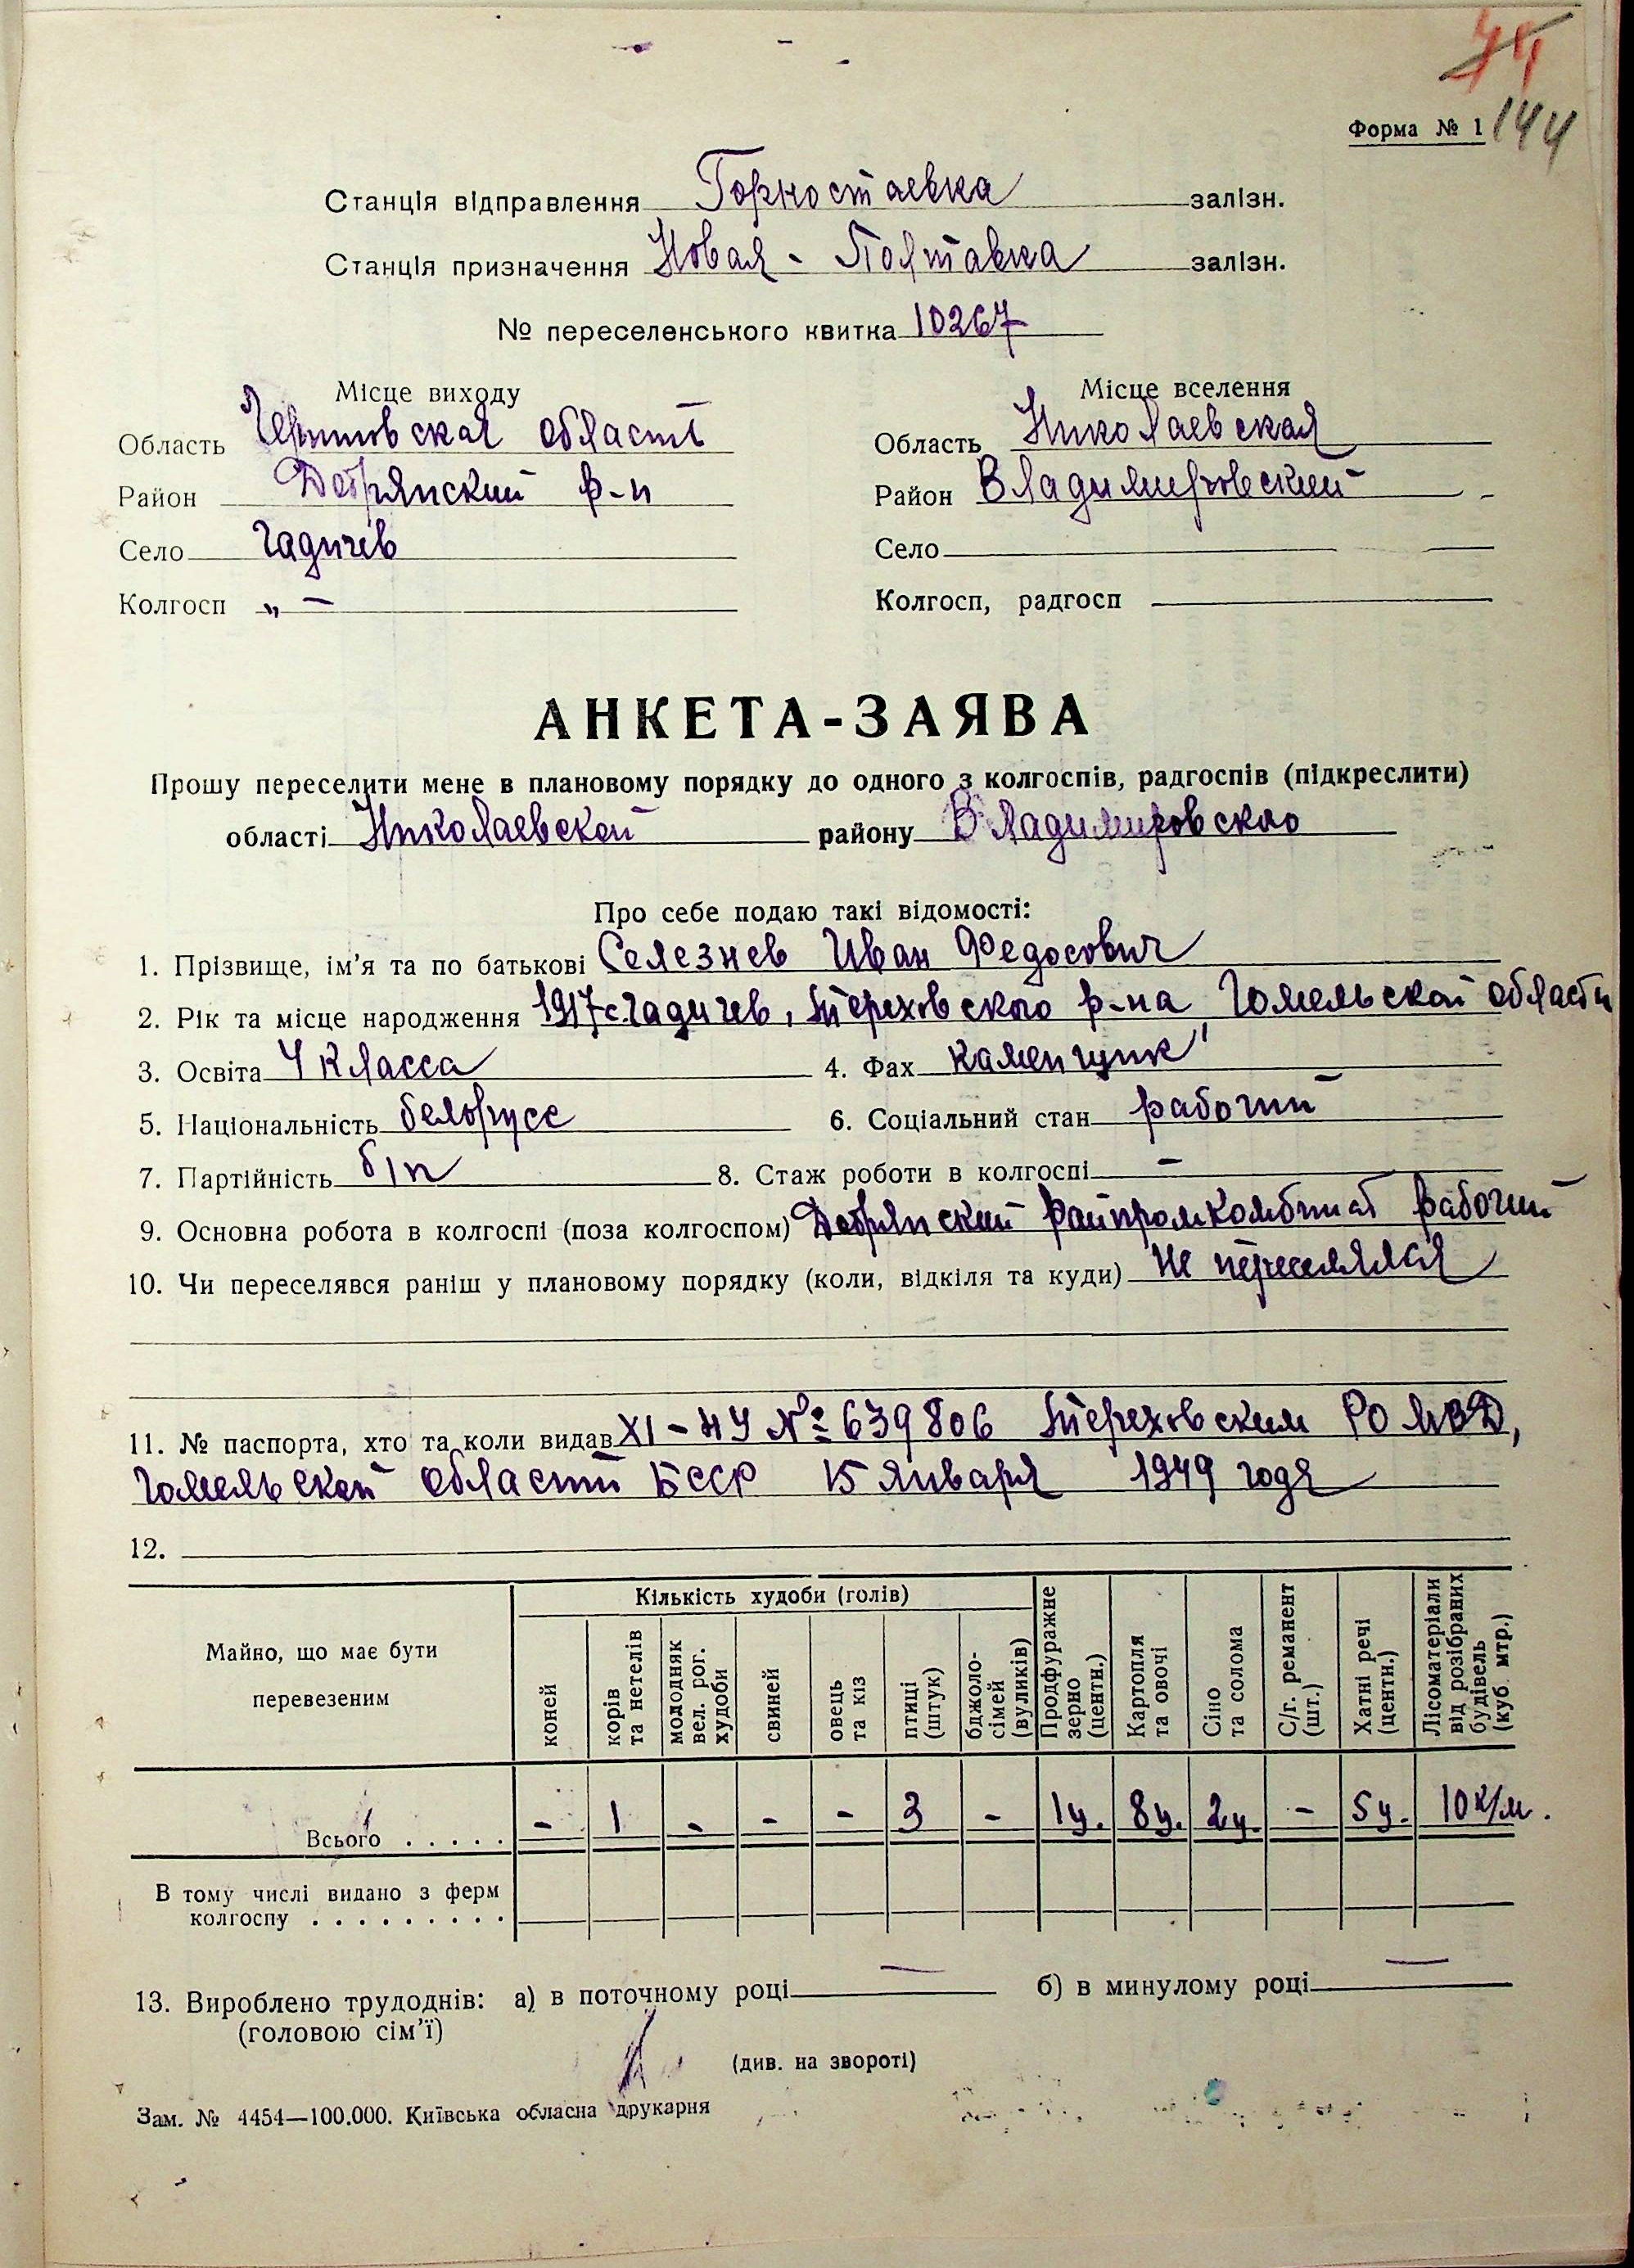 144
Форма № 1
Станція відправлення Горностаевка залізн.
Станція призначення Новая - Полтавка залізн.
№ переселенського квитка 10267
Місце виходу
Область Черниговская область
Район Добрянский р-н
Село Гадичев
Колгосп „ –
Місце вселення
Область Николаевская
Район Владимировский
Село
Колгосп, радгосп
АНКЕТА-ЗАЯВА
Прошу переселити мене в плановому порядку до одного з колгоспів, радгоспів (підкреслити)
області Николаевской району Владимировского
Про себе подаю такі відомості:
1. Прізвище, ім'я та по батькові Селезнев Иван Федосович
2. Рік та місце народження 1917 с. Гадичев, Тереховского р-на Гомельской области
3. Освіта 4 класса 4. Фах каменщик
5. Національність белорусс 6. Соціальний стан рабочий
7. Партійність б/п 8. Стаж роботи в колгоспі –
9. Основна робота в колгоспі (поза колгоспом) Добрянский райпромкомбинат рабочий
10. Чи переселявся раніш у плановому порядку (коли, відкіля та куди) не переселялся
11. № паспорта, хто та коли видав XI-НУ № 639806 Тереховским РО МВД,
Гомельской области БССР 15 января 1949 года
12.
Майно, що має бути перевезеним
Кількість худоби (голів)
коней
корів та нетелів
молодняк вел. рог. худоби
свиней
овець та кіз
птиці (штук)
бджоло-сімей (вуликів)
Продфуражне зерно (центн.)
Картопля та овочі
Сіно та солома
С/г. реманент (шт.)
Хатні речі (центн.)
Лісоматеріали від розібраних будівель (куб. мтр.)
Всього . . . . . - 1 - - - 3 - 1ц. 8ц. 2ц. - 5ц. 10 к/м.
В тому числі видано з ферм
колгоспу . . . . . . . . .
13. Вироблено трудоднів: а) в поточному році — б) в минулому році —
(головою сім'ї)
(див. на звороті)
Зам. № 4454—100.000. Київська обласна друкарня